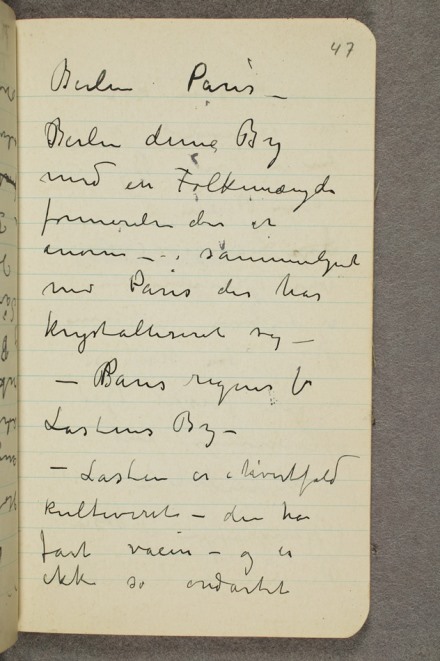 47
Berlin Paris –
Berlin denne By
med en Folkemængde
formerelse der er
enorm – sammenlignet
med Paris der har
krystalliseret sig –
– Paris regnes for
Lastens By –
– Lasten er i hvertfald
kultiveret – den har
fast
– og er
ikke så ondartet